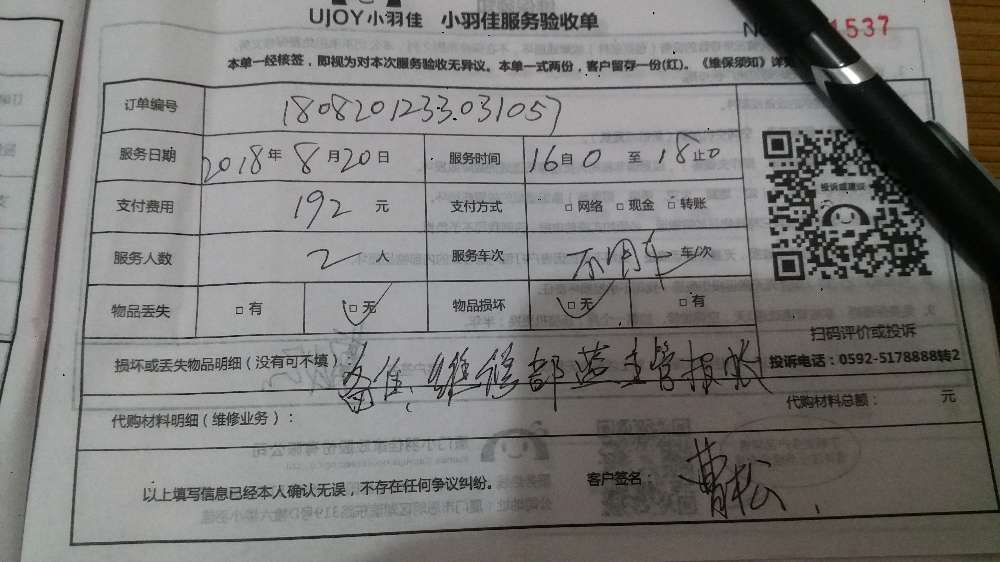 UJOY小羽佳 小羽佳服务验收单
No 1537
本单一经核签，即视为对本次服务验收无异议。本单一式两份，客户留存一份(红)。《维保须知》详
订单编号 1808201233.031057
服务日期 2018年8月20日 服务时间 16自0至18止0
支付费用 192元 支付方式 □网络 □现金 □转账
服务人数 2人 服务车次 不用车 车/次
物品丢失 □有 □无 物品损坏 □无 □有
投诉或建议
扫码评价或投诉
投诉电话：0592-5178888转2
损坏或丢失物品明细（没有可不填） 备注：维修部蓝主管报账
代购材料明细（维修业务）： 代购材料总额： 元
以上填写信息已经本人确认无误，不存在任何争议纠纷。 客户签名： 曹松